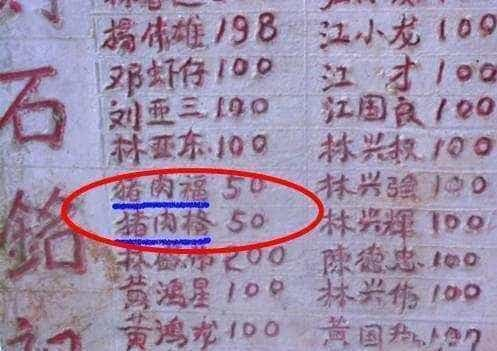 石
楊伟雄 198 江小龙 100
邓虾仔 100 江才 100
刘亚三 100 江国良 100
林亚东 100 林兴权 100
猪肉福 50 林兴强 100
猪肉 50 林兴辉 100
林盛伟 200 陈德忠 100
黄鸿星 100 林兴伟 100
黄鸿龙 100 黄国